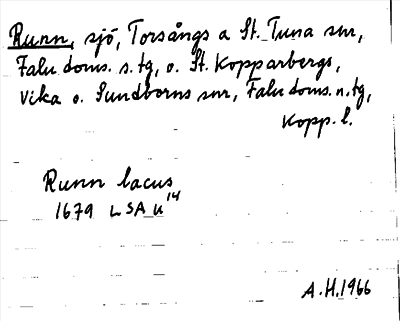 Runn, sjö, Torsångs o St. Tuna snr,
Falu doms. s. tg, o. St. Kopparbergs,
Vika o. Sundborns snr, Falu doms. n. tg,
Kopp. l.
Runn lacus
1679 LSA U 14
A.H. 1966